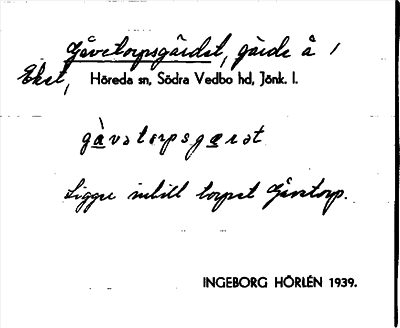 Gåvetorpsgärdet, gärde å 1
Ekst, Höreda sn, Södra Vedbo hd, Jönk. l.
gàvətɷrpsgærət
Ligger intill torpet Gåvetorp.
INGEBORG HÖRLÉN 1939.